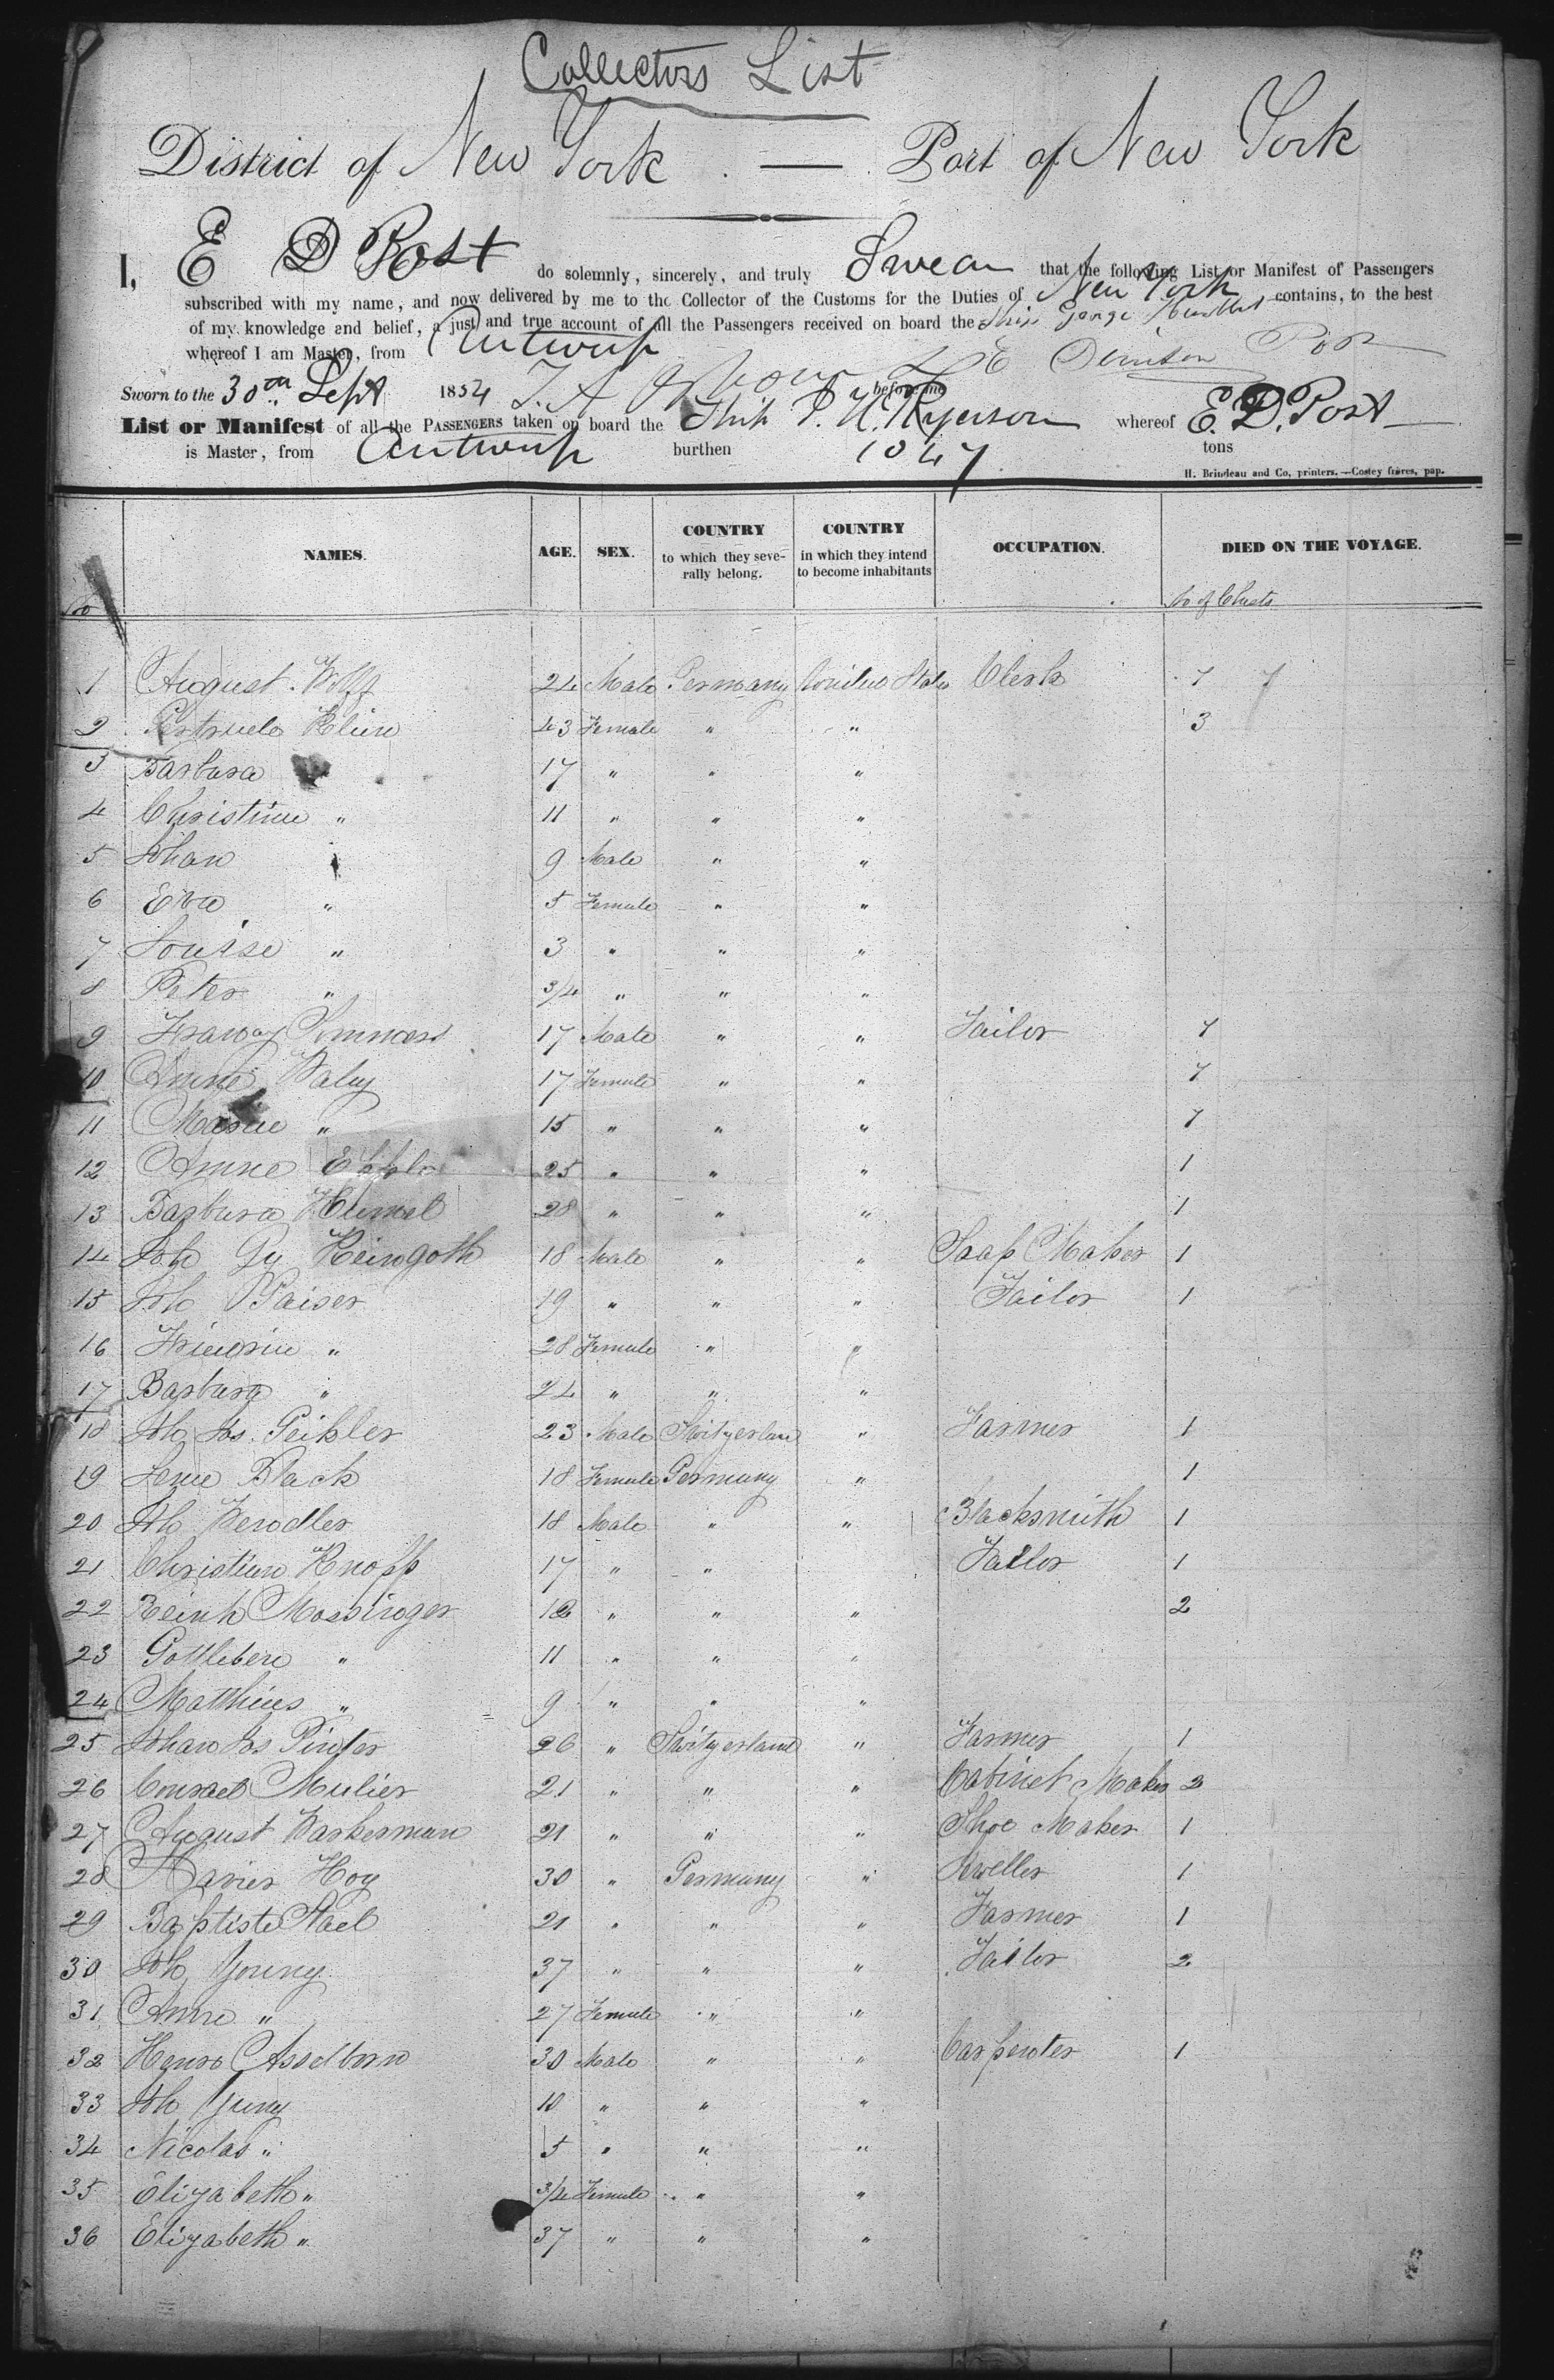 Collectors List
District of New York — Port of New York
I, E D Post do solemnly, sincerely, and truly Swear that the following List or Manifest of Passengers
subscribed with my name, and now delivered by me to the Collector of the Customs for the Duties of New York contains, to the best
of my knowledge and belief, a just and true account of all the Passengers received on board the Ship George
whereof I am Master, from Antwerp
Sworn to the 30th Sept 1854 before me
List or Manifest of all the PASSENGERS taken on board the Ship Ryerson whereof E. D. Post
is Master, from Antwerp burthen 1047 tons
H. Brindeau and Co, printers.—Costey frères, pap.
NAMES. AGE. SEX. COUNTRY to which they severally belong. COUNTRY in which they intend to become inhabitants OCCUPATION. DIED ON THE VOYAGE.
No No of Chests
1 August Wolff 24 Male Germany United States Clerk 7 7
2 Klein 43 Female " " 3
3 Barbara 17 " " "
4 Christine " 11 " " "
5 Johan " 9 Male " "
6 Eva " 5 Female " "
7 Louise " 3 " " "
8 Peter " 3/4 " " "
9 17 Male " " Tailor 7
10 Anne 17 Female " " 7
11 Marie " 15 " " " 7
12 Anne Epple 25 " " " 1
13 Barbara Himmel 28 " " " 1
14 Joh Gg Reingoth 18 Male " " Soap Maker 1
15 Joh Paiser 19 " " " Tailor 1
16 " 28 Female " "
17 Barbara " 24 " " "
18 Joh Jos. Geibler 23 Male Switzerland " Farmer 1
19 Lene Black 18 Female Germany " 1
20 Joh Wendler 18 Male " " Blacksmith 1
21 Christian Knopp 17 " " Tailor 1
22 Reinh Mossinger 16 " " " 2
23 Gottlieben " 11 " " "
24 Matthias " 9 " " "
25 Johan Jos Pinter 26 " Switzerland " Farmer 1
26 Conrad Mulier 21 " " " Cabinet Maker 2
27 August Wakerman 21 " " " Shoe Maker 1
28 Xavier Hog 30 " Germany " Jweller 1
29 Baptiste Stael 21 " " " Farmer 1
30 Joh Young 37 " " " Tailor 2
31 Anne " 27 Female " "
32 Henro Asselborn 30 Male " " Carpenter 1
33 Joh Yung 10 " " "
34 Nicolas " 5 " " "
35 Elizabeth " 3/4 Female " "
36 Elizabeth " 37 " " "